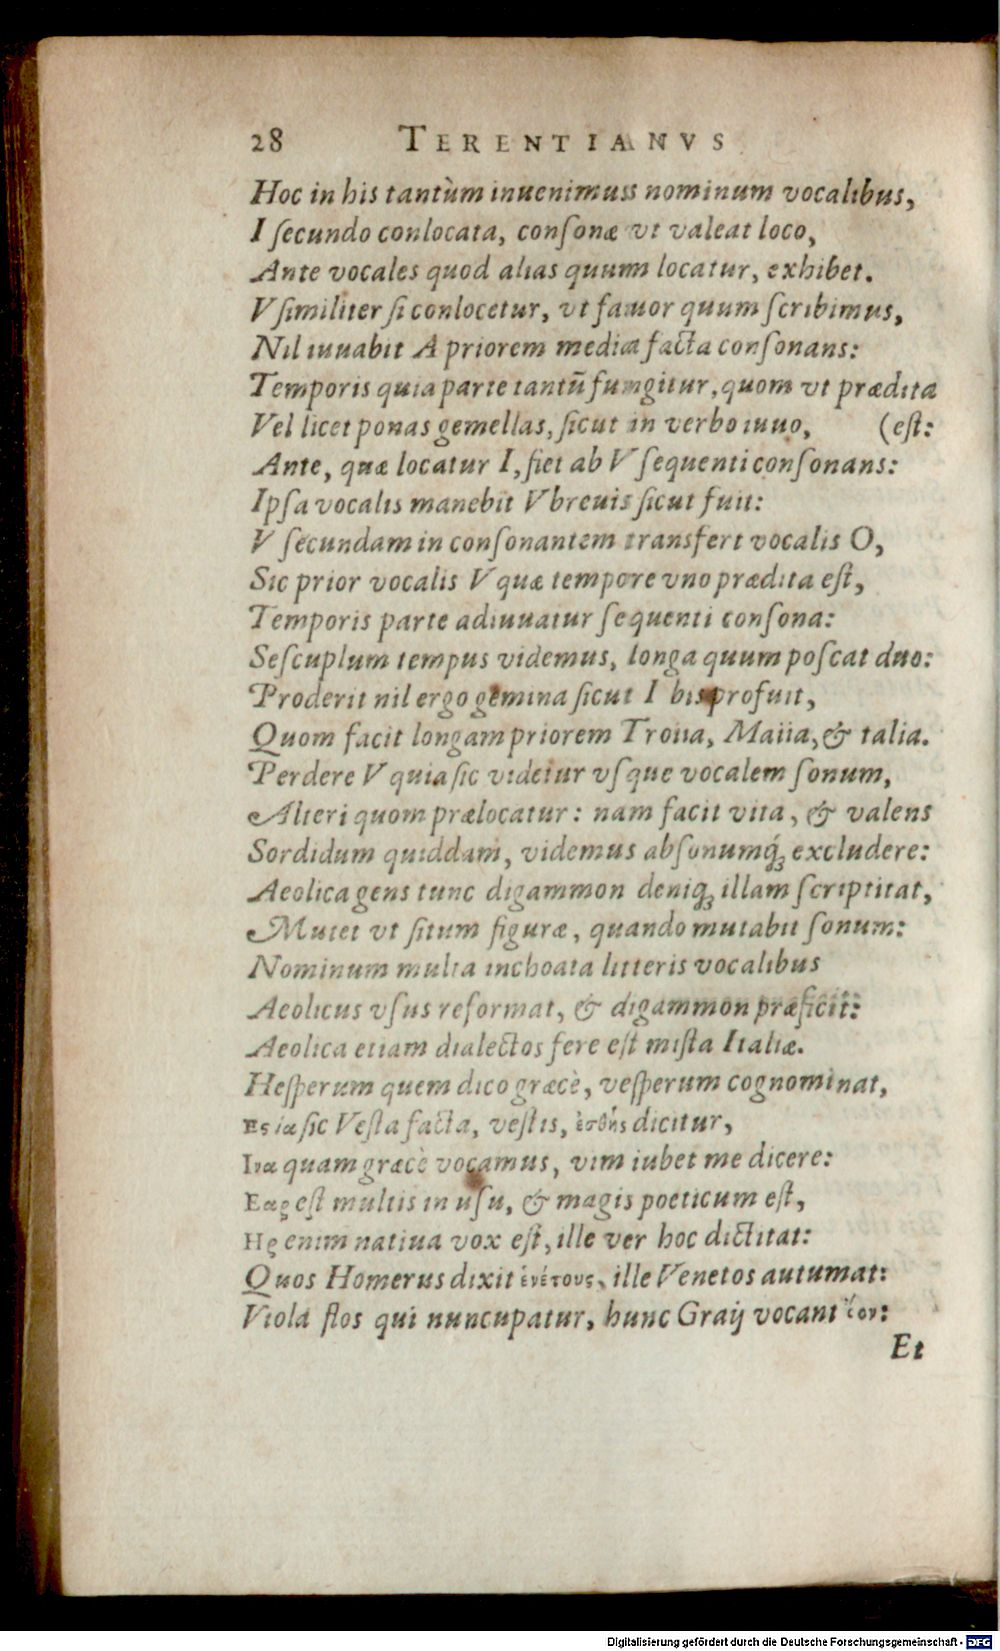 28 TERENTIANVS
Hoc in his tantùm inuenimuss nominum vocalibus,
I ſecundo conlocata, conſonæ vt valeat loco,
Ante vocales quod alias quum locatur, exhibet.
V ſimiliter ſi conlocetur, vt fauor quum ſcribimus,
Nil iuuabit A priorem media facta conſonans:
Temporis quia parte tantũ fungitur, quom vt prædita
Vel licet ponas gemellas, ſicut in verbo iuuo, (eſt:
Ante, quæ locatur I, fiet ab V ſequenti conſonans:
Ipſa vocalis manebit V breuis ſicut fuit:
V ſecundam in conſonantem transfert vocalis O,
Sic prior vocalis V quæ tempore vno prædita eſt,
Temporis parte adiuuatur ſequenti conſona:
Seſcuplum tempus videmus, longa quum poſcat duo:
Proderit nil ergo gemina ſicut I bis profuit,
Quom facit longam priorem Troiia, Maiia, & talia.
Perdere V quia ſic videtur vſque vocalem ſonum,
Alteri quom prælocatur: nam facit vita, & valens
Sordidum quiddam, videmus abſonumq́; excludere:
Aeolica gens tunc digammon deniq; illam ſcriptitat,
Mutet vt ſitum figuræ, quando mutabit ſonum:
Nominum multa inchoata litteris vocalibus
Aeolicus vſus reformat, & digammon præficit:
Aeolica etiam dialectos fere eſt miſta Italiæ.
Heſperum quem dico græcè, veſperum cognominat,
Εςια ſic Veſta facta, veſtis, ἐσθὴς dicitur,
Ινα quam græcè vocamus, vim iubet me dicere:
Εας eſt multis in uſu, & magis poeticum eſt,
Ης enim natiua vox eſt, ille ver hoc dictitat:
Quos Homerus dixit ἐνέτους, ille Venetos autumat:
Viola flos qui nuncupatur, hunc Graij vocant ἴον:
Et
Digitalisierung gefördert durch die Deutsche Forschungsgemeinschaft - DFG